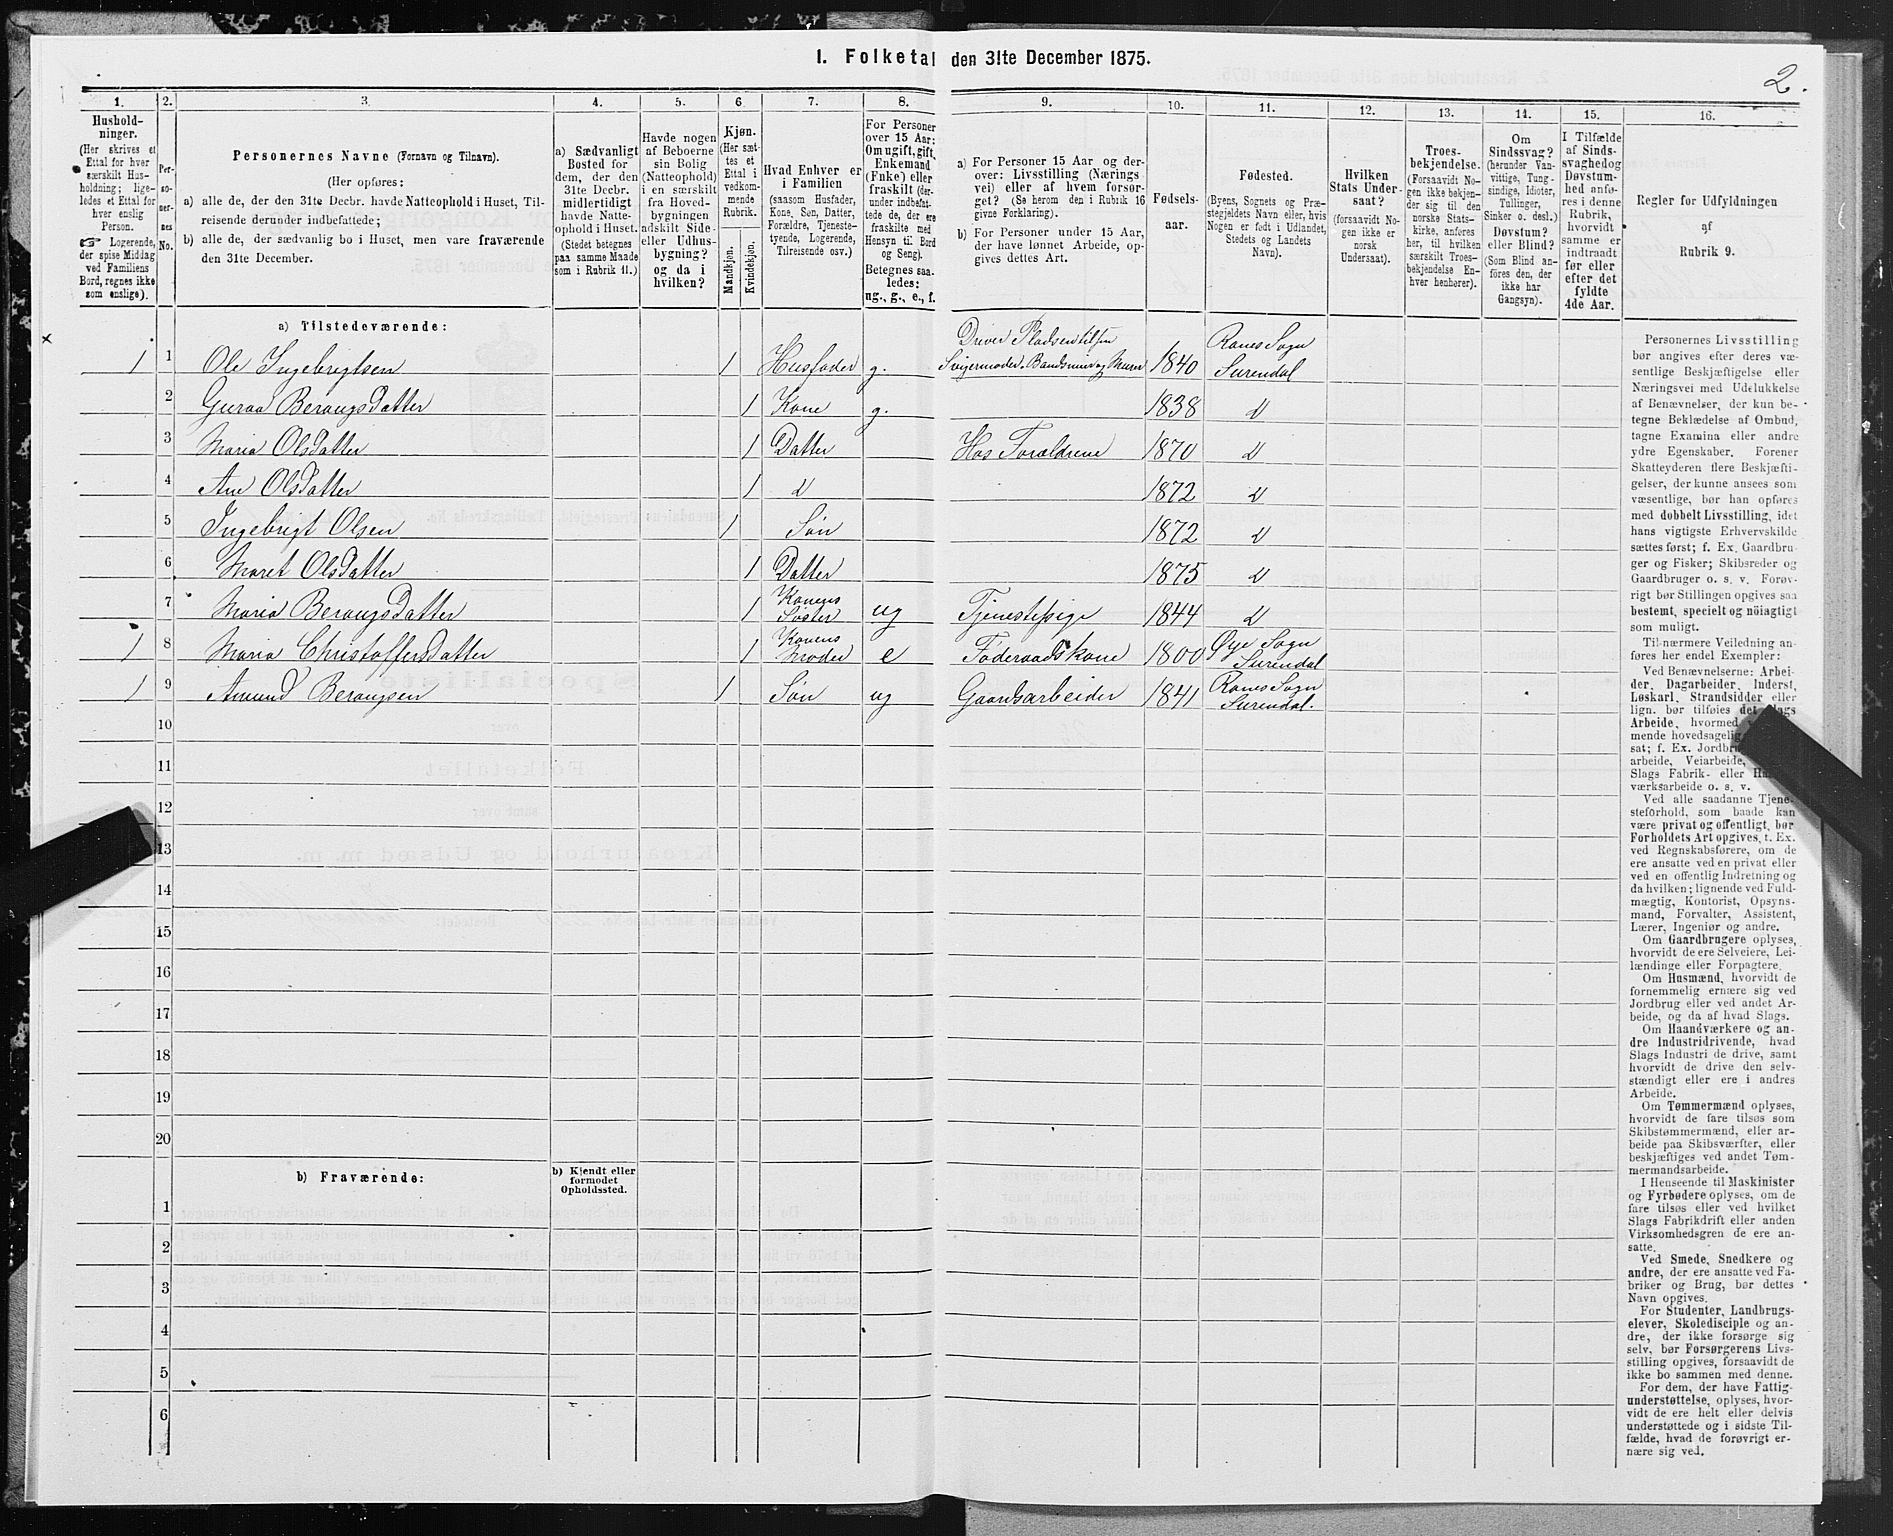 1. Folketal den 31te December 1875.
2.
1. 2. 3. 4. 5. 6. 7. 8. 9. 10. 11. 12. 13. 14. 15. 16.
Hushold-
ninger.
(Her skrives et
Ettal for hver
særskilt Hus-
holdning; lige-
ledes et Ettal for
hver enslig
Person.
☞ Logerende,
der spise Middag
ved Familiens
Bord, regnes ikke
som enslige).
Per-
so-
ner-
nes
No.
Personernes Navne (Fornavn og Tilnavn).
(Her opføres:
a) alle de, der den 31te Decbr. havde Natteophold i Huset, Til-
reisende derunder indbefattede;
b) alle de, der sædvanlig bo i Huset, men vare fraværende
den 31te December.
a) Sædvanligt
Bosted for
dem, der den
31te Decbr.
midlertidigt
havde Natte-
ophold i Huset.
(Stedet betegnes
paa samme Maade
som i Rubrik 11.)
Havde nogen
af Beboerne
sin Bolig
(Natteophold)
i en særskilt
fra Hoved-
bygningen
adskilt Side-
eller Udhus-
bygning?
og da i
hvilken?
Kjøn.
(Her sæt-
tes et
Ettal i
vedkom-
mende
Rubrik.
Mandkjøn.
Kvindekjøn.
Hvad Enhver er
i Familien
(saasom Husfader,
Kone, Søn, Datter,
Forældre, Tjeneste-
tyende, Logerende,
Tilreisende osv.)
For Personer
over 15 Aar:
Om ugift, gift,
Enkemand
(Enke) eller
fraskilt (der-
under indbefat-
tede de, der ere
fraskilte med
Hensyn til Bord
og Seng).
Betegnes saa-
ledes:
ug., g., e., f.
a) For Personer 15 Aar og der-
over: Livsstilling (Nærings-
vei) eller af hvem forsør-
get? (Se herom den i Rubrik 16
givne Forklaring).
b) For Personer under 15 Aar,
der have lønnet Arbeide, op-
gives dettes Art.
Fødsels-
aar.
Fødested.
(Byens, Sognets og Præ-
stegjeldets Navn eller, hvis
Nogen er født i Udlandet,
Stedets og Landets
Navn).
Hvilken
Stats Under-
saat?
(forsaavidt No-
gen ikke er
norsk
Undersaat).
Troes-
bekjendelse.
(Forsaavidt No-
gen ikke bekjen-
der sig til den
norske Stats-
kirke, anføres
her, til hvilken
særskilt Troes-
bekjendelse En-
hver henhører).
Om
Sindssvag?
(herunder Van-
vittige, Tung-
sindige, Idioter,
Tullinger,
Sinker o. desl.)
Døvstum?
eller Blind?
(Som Blind an-
føres den, der
ikke har
Gangsyn).
I Tilfælde
af Sinds-
svaghed og
Døvstum-
hed anfø-
res i denne
Rubrik,
hvorvidt
samme er
indtraadt
før eller
efter det
fyldte
4de Aar.
Regler for Udfyldningen
af
Rubrik 9.
a) Tilstedeværende:
1 1 Ole Ingebrigtsen 1 Husfader g. Driver Pladsen tilsin Svigermoder. Bandsmin og Murer 1840 Ranes Sogn Surendal
2 Guraa BerangsDatter 1 Kone g. 1838 d
3 Maria OlsDatter 1 Datter Hos Forældrene 1870 d
4 Ane OlsDatter 1 d 1872 d
5 Ingebrigt Olsen 1 Søn 1872 d
6 Maret OlsDatter 1 Datter 1875 d
7 Maria BerangsDatter 1 Konens Søster ug Tjenestepige 1844 d
1 8 Maria ChristoffersDatter 1 Konens Moder e Føderaadskone 1800 Øye Sogn Surendal
1 9 Amund Berangsen 1 Søn ug Gaardsarbeider 1841 Ranes Sogn Surendal.
10
11
12
13
14
15
16
17
18
19
20
b) Fraværende:
b) Kjendt eller
formodet
Opholdssted.
1
2
3
4
5
6
Personernes Livsstilling
bør angives efter deres væ-
sentlige Beskjæftigelse eller
Næringsvei med Udelukkelse
af Benævnelser, der kun be-
tegne Beklædelse af Ombud,
tagne Examina eller andre
ydre Egenskaber. Forener
Skatteyderen flere Beskjæfti-
gelser, der kunne ansees som
væsentlige, bør han opføres
med dobbelt Livsstilling, idet
hans vigtigste Erhvervskilde
sættes først; f. Ex. Gaardbru-
ger og Fisker; Skibsreder og
Gaardbruger o. s. v. Forøv-
rigt bør Stillingen opgives saa
bestemt, specielt og nøiagtigt
som muligt.
Til nærmere Veiledning an-
føres her endel Exempler:
Ved Benævnelserne: Arbei-
der, Dagarbeider, Inderst,
Løskarl, Strandsidder eller
lign. bør tilføies det Slags
Arbeide, hvormed
mende hovedsagelig
sat; f. Ex.
arbeide, Veiarbeide,
Slags Fabrik- eller
værksarbeide o. s. v.
Ved alle saadanne Tjene-
steforhold, som baade kan
være privat og offentligt, bør
Forholdets Art opgives, t. Ex.
ved Regnskabsførere, om de
ere ansatte ved en privat eller
ved en offentlig Indretning og
da hvilken; lignende ved Fuld-
mægtig, Kontorist, Opsyns-
mand, Forvalter, Assistent,
Lærer, Ingeniør og andre.
Om Gaardbrugere oplyses,
hvorvidt de ere Selveiere, Lei-
lændinge eller Forpagtere.
Om Husmænd, hvorvidt de
fornemmelig ernære sig ved
Jordbrug eller ved andet Ar-
beide, og da af hvad Slags.
Om Haandværkere og an-
dre Industridrivende, hvad
Slags Industri de drive, samt
hvorvidt de drive den selv-
stændigt eller ere i andres
Arbeide.
Om Tømmermænd oplyses,
hvorvidt de fare tilsøs som
Skibstømmermænd, eller ar-
beide paa Skibsværfter, eller
beskjæftiges ved andet Tøm-
mermandsarbeide.
I Henseende til Maskinister
og Fyrbødere oplyses, om de
fare tilsøs eller ved hvilket
Slags Fabrikdrift eller anden
Virksomhedsgren de ere an-
satte.
Ved Smede, Snedkere og
andre, der ere ansatte ved Fa-
briker og Brug, bør dettes
Navn opgives.
For Studenter, Landbrugs-
elever, Skoledisciple og an-
dre, der ikke forsørge sig
selv, bør Forsørgerens Livs-
stilling opgives, forsaavidt de
ikke bo sammen med denne.
For dem, der have Fattig-
understøttelse, oplyses, hvor-
vidt de ere helt eller delvis
understøttede og i sidste Til-
fælde, hvad de forøvrigt er-
nære sig ved.